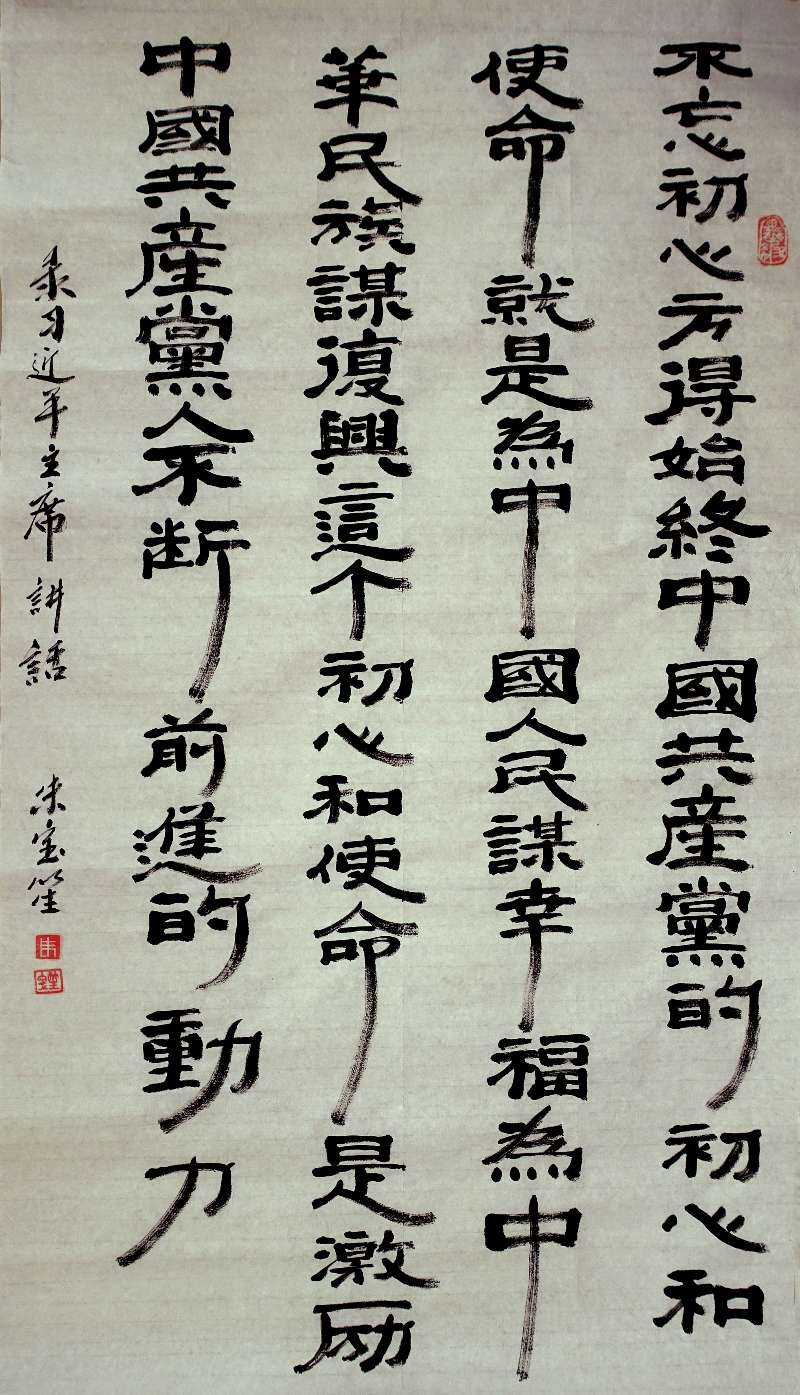 不忘初心方得始終中國共産黨的初心和
使命就是為中國人民謀幸福為中
華民族謀復興這个初心和使命是激励
中國共産黨人不断前進的動力
录习近平主席講話
朱宝笙